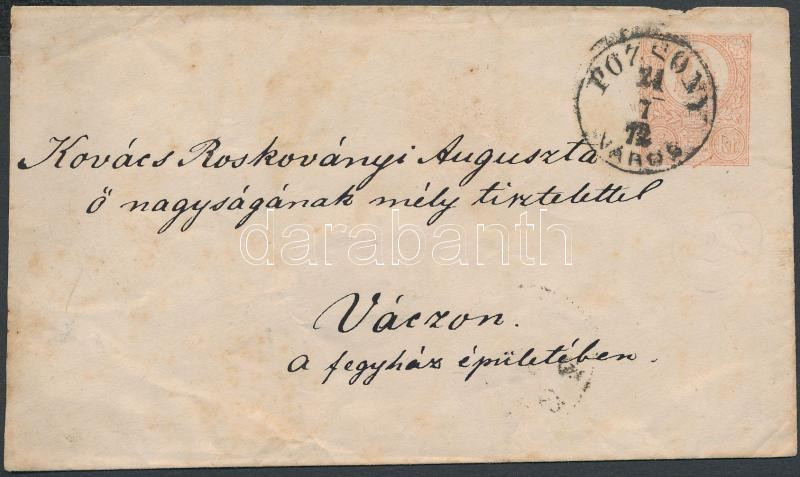 POZSONY
21
7
72
VÁROS
Kovács Roskoványi Auguszta
ő nagyságának mély tisztelettel
darabanth
Váczon.
a fegyház épületében.